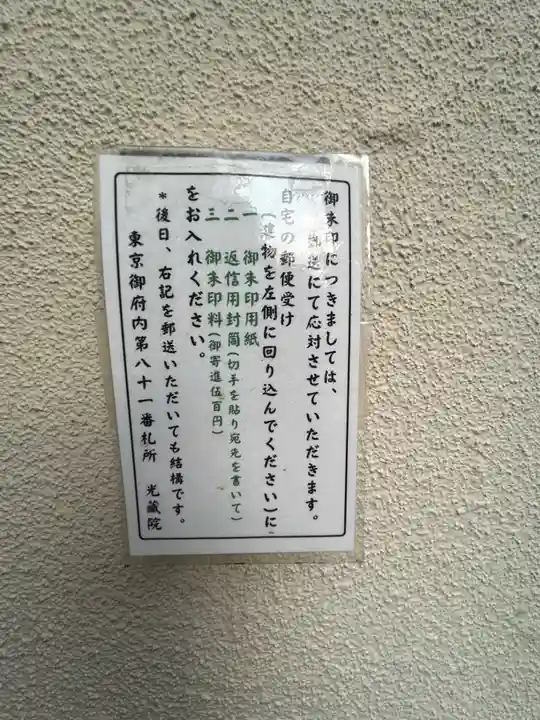 御朱印につきましては、
郵送にて応対させていただきます。
自宅の郵便受け
(建物を左側に回り込んでください)に
一　御朱印用紙
二　返信用封筒(切手を貼り宛先を書いて)
三　御朱印料(御寄進伍百円)
をお入れください。
*後日、右記を郵送いただいても結構です。
東京御府内第八十一番札所　光蔵院